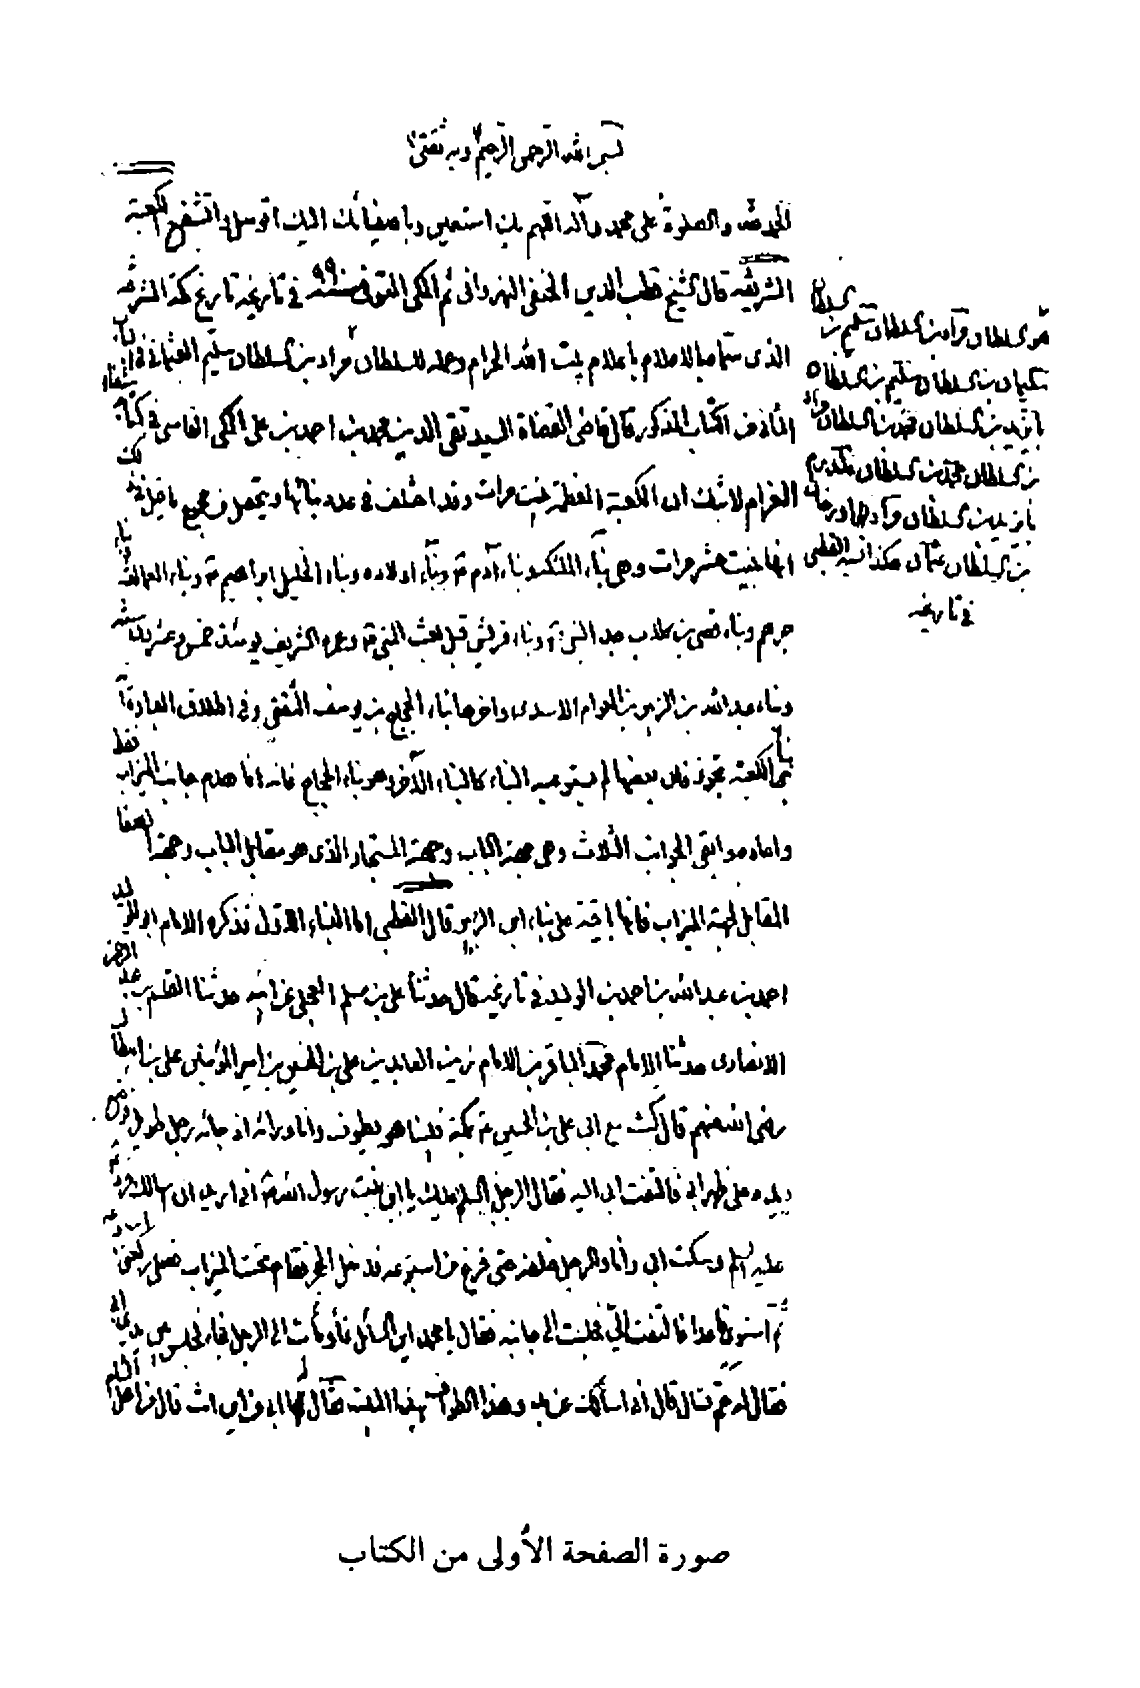 بسم الله الرحمن الرحيم وبه ثقتي
الحمد لله والصلوة على محمد وآله اللهم بك استعين وباصفيائك اليك اتوسل واتشفع الكعبة
الشريفة قال الشيخ قطب الدين الحنفي النهرواني ثم المكي المتوفى سنة ٩٩٠ في تاريخه تاريخ مكة المشرفة
الذي سماه بالاعلام باعلام بيت الله الحرام وجعله للسلطان مراد بن السلطان سليم العثماني في
الماخذ من الكتاب المذكور قال قاضي القضاة السيد تقي الدين محمد بن احمد بن علي المكي الفاسي في كتابه شفاء
الغرام لا شك ان الكعبة المعظمة بنيت مرات وقد اختلف في عدد بنائها ويتحصل من مجموع ما قيل في ذلك
انها بنيت عشر مرات وهي بناء الملائكة وبناء آدم ع وبناء اولاده وبناء الخليل ابراهيم ع وبناء العمالقة وبناء
جرهم وبناء قصي بن كلاب جد النبي وبناء قريش قبل بعث النبي وعمره الشريف يومئذ خمس وعشرين سنة
وبناء عبد الله بن الزبير بن العوام الاسدي واخرها بناء الحجاج بن يوسف الثقفي وفي اطلاق العبارة
بناء الكعبة تجوز فان بعضها لم يستوعبه البناء كالبناء الآخر وهو بناء الحجاج فانه انما هدم جانب الميزاب فقط
واعاده وابقى الجوانب الثلاث وهي جهة الباب وجهة المستجار الذي هو مقابل الباب وجهة الصفا
المقابل لجهة الميزاب فانها باقية على بناء ابن الزبير قال القطبي اما البناء الاول فذكره الامام ابو الوليد
احمد بن عبد الله بن احمد بن الوليد في تاريخه قال حدثنا علي بن مسلم العجلي عن ابيه حدثنا القاسم بن عبد الرحمن
الانصاري حدثنا الامام محمد الباقر بن الامام زين العابدين علي بن الحسين بن امير المؤمنين علي بن ابيطالب
رضي الله عنهم قال كنت مع ابي علي بن الحسين ع بمكة فبينا هو يطوف وانا وراءه اذ جائه رجل طويل فوضع
يده على ظهر ابي فالتفت ابي اليه فقال الرجل السلام عليك يا ابن بنت رسول الله اني اريد ان اسالك فرد
عليه السلم وسكت ابي وانا والرجل خلفه حتى فرغ من اسبوعه فدخل الحجر فقام تحت الميزاب فصلى ركعتي اسبوعه
ثم استوى قاعدا فالتفت الي فجلست الى جانبه فقال يا محمد اين السائل فأومأت الى الرجل فجاء فجلس بين يدي ابي
فقال له عم تسال قال اني اسألك عن بدء هذا الطواف بهذا البيت فقال له ابي من اين انت قال من اهل الشام
هو السلطان مراد بن السلطان سليم بن السلطان
سليمان بن السلطان سليم بن السلطان
بايزيد بن السلطان محمد بن السلطان مراد
بن السلطان محمد بن السلطان
بايزيد بن السلطان مراد بن اورخان
بن السلطان عثمان هكذا نسبه القطبي
في تاريخه
صورة الصفحة الأولى من الكتاب